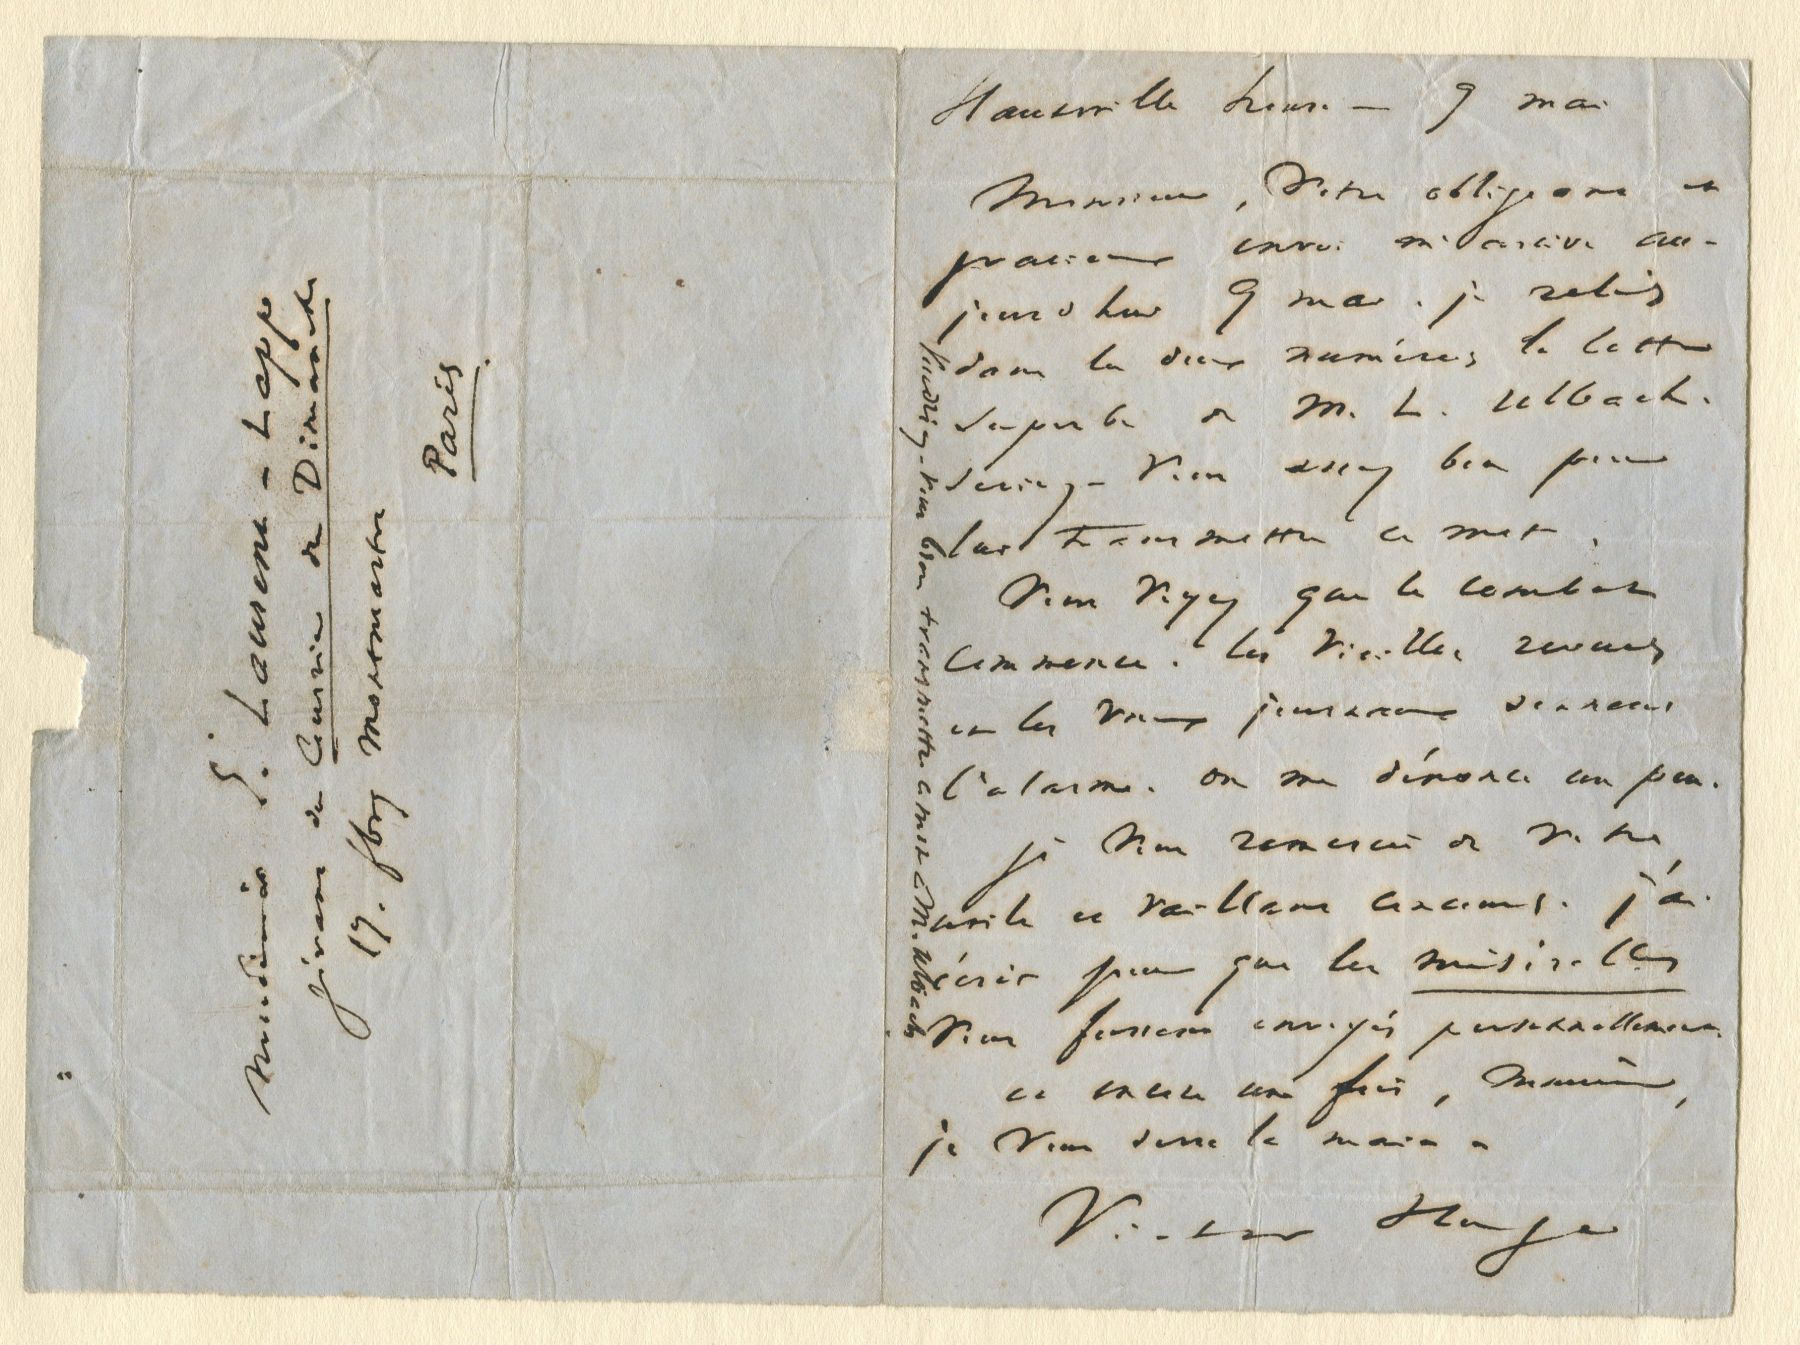 Hauteville house — 9 mai
Monsieur, Votre obligeant et
gracieux envoi m'arrive au-
jourd'hui 9 mai. je relis
dans les deux numéros la lettre
superbe de M. L. Ulbach.
serez-vous assez bon pour
lui transmettre ce mot.
Vous voyez que le combat
commence. les vieilles revues
et les vieux journaux sonnent
l'alarme. on me dénonce un peu.
je vous remercie de votre
utile et vaillant concours. j'ai
écrit pour que les misérables
vous fussent envoyés personnellement.
et encore une fois, Monsieur,
je vous serre la main.
Victor Hugo
Voudriez-vous bien transmettre ce mot à M. Ulbach
Monsieur E. Lausent-Lapp
gérant du Courrier du Dimanche
17. fbg Montmartre
Paris.